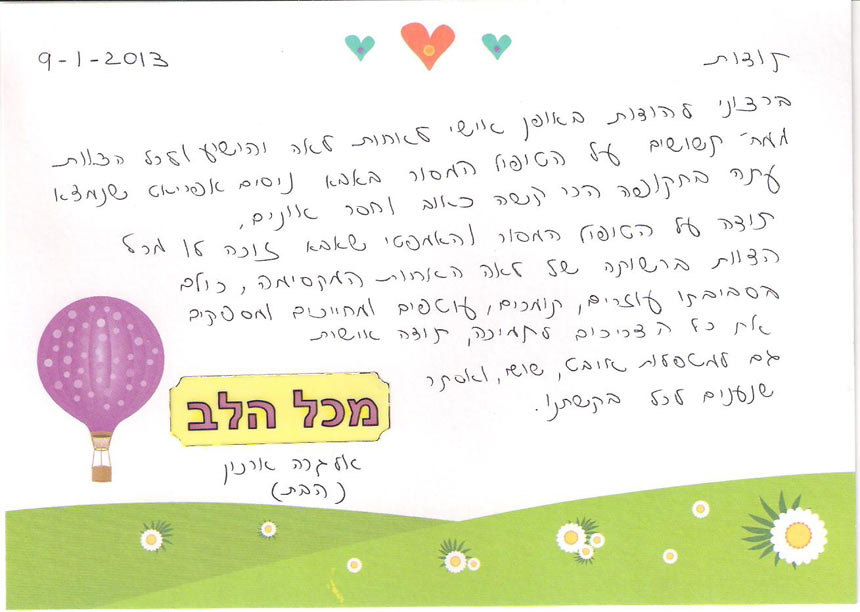 9-1-2013
תודות
ברצוני להודות באופן אישי לאחות לאה והושיע ולכל הצוות
ממח' תשושים על הטיפול המסור באבא ניסים אפריאט שנמצא
עתה בתקופה הכי קשה כאוב וחסר אונים,
תודה על הטיפול המסור והאמפטי שאבא זוכה לו מכל
הצוות ברשותה של לאה האחות המקסימה, כולם
בסביבתו עוזרים, תומכים, עוטפים ומחייכים ומספקים
את כל הצריכים לתמיכה, תודה אישית
גם למטפלות אובט, שושי, ואסתר
שנענים לכל בקשתנו.
מכל הלב
אלגרה
(הבת)